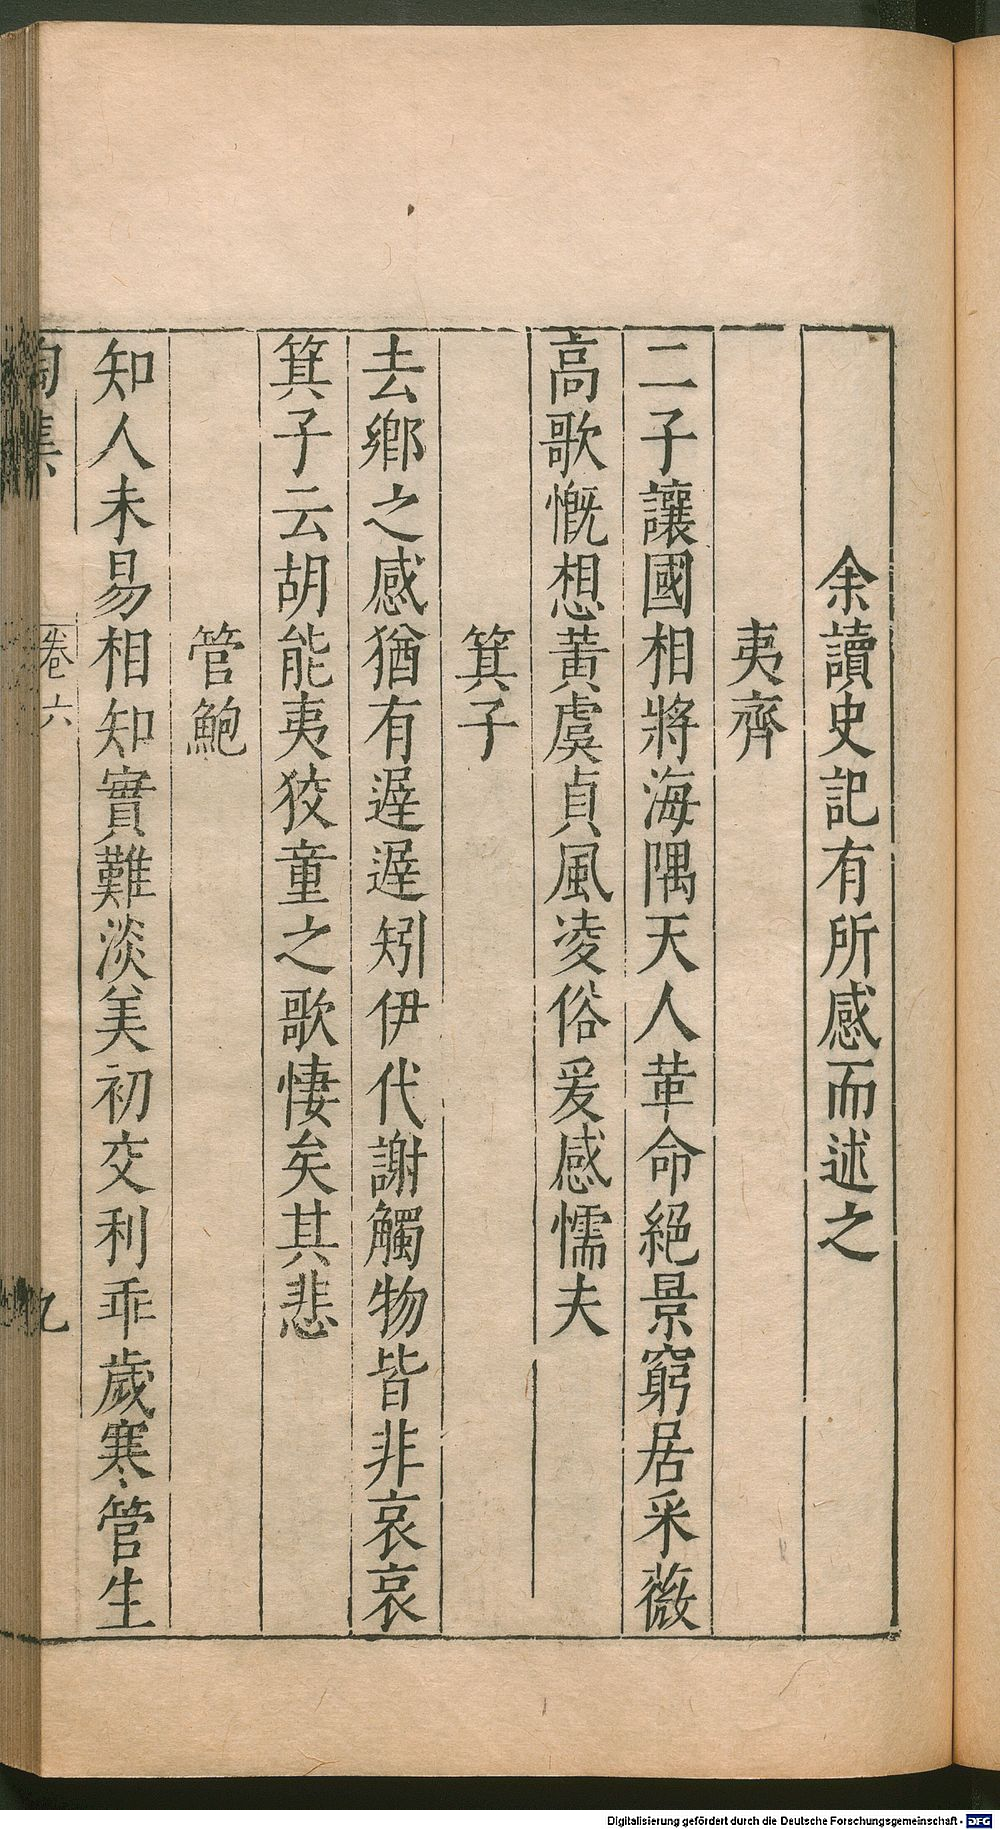 余讀史記有所感而述之
夷齊
二子讓國相將海隅天人革命絕景窮居采薇
高歌慨想黃虞貞風凌俗爰感懦夫
箕子
去鄉之感猶有遲遲矧伊代謝觸物皆非哀哀
箕子云胡能夷狡童之歌悽矣其悲
管鮑
知人未易相知實難淡美初交利乖歲寒管生
陶集
卷六
九
Digitalisierung gefördert durch die Deutsche Forschungsgemeinschaft - DFG